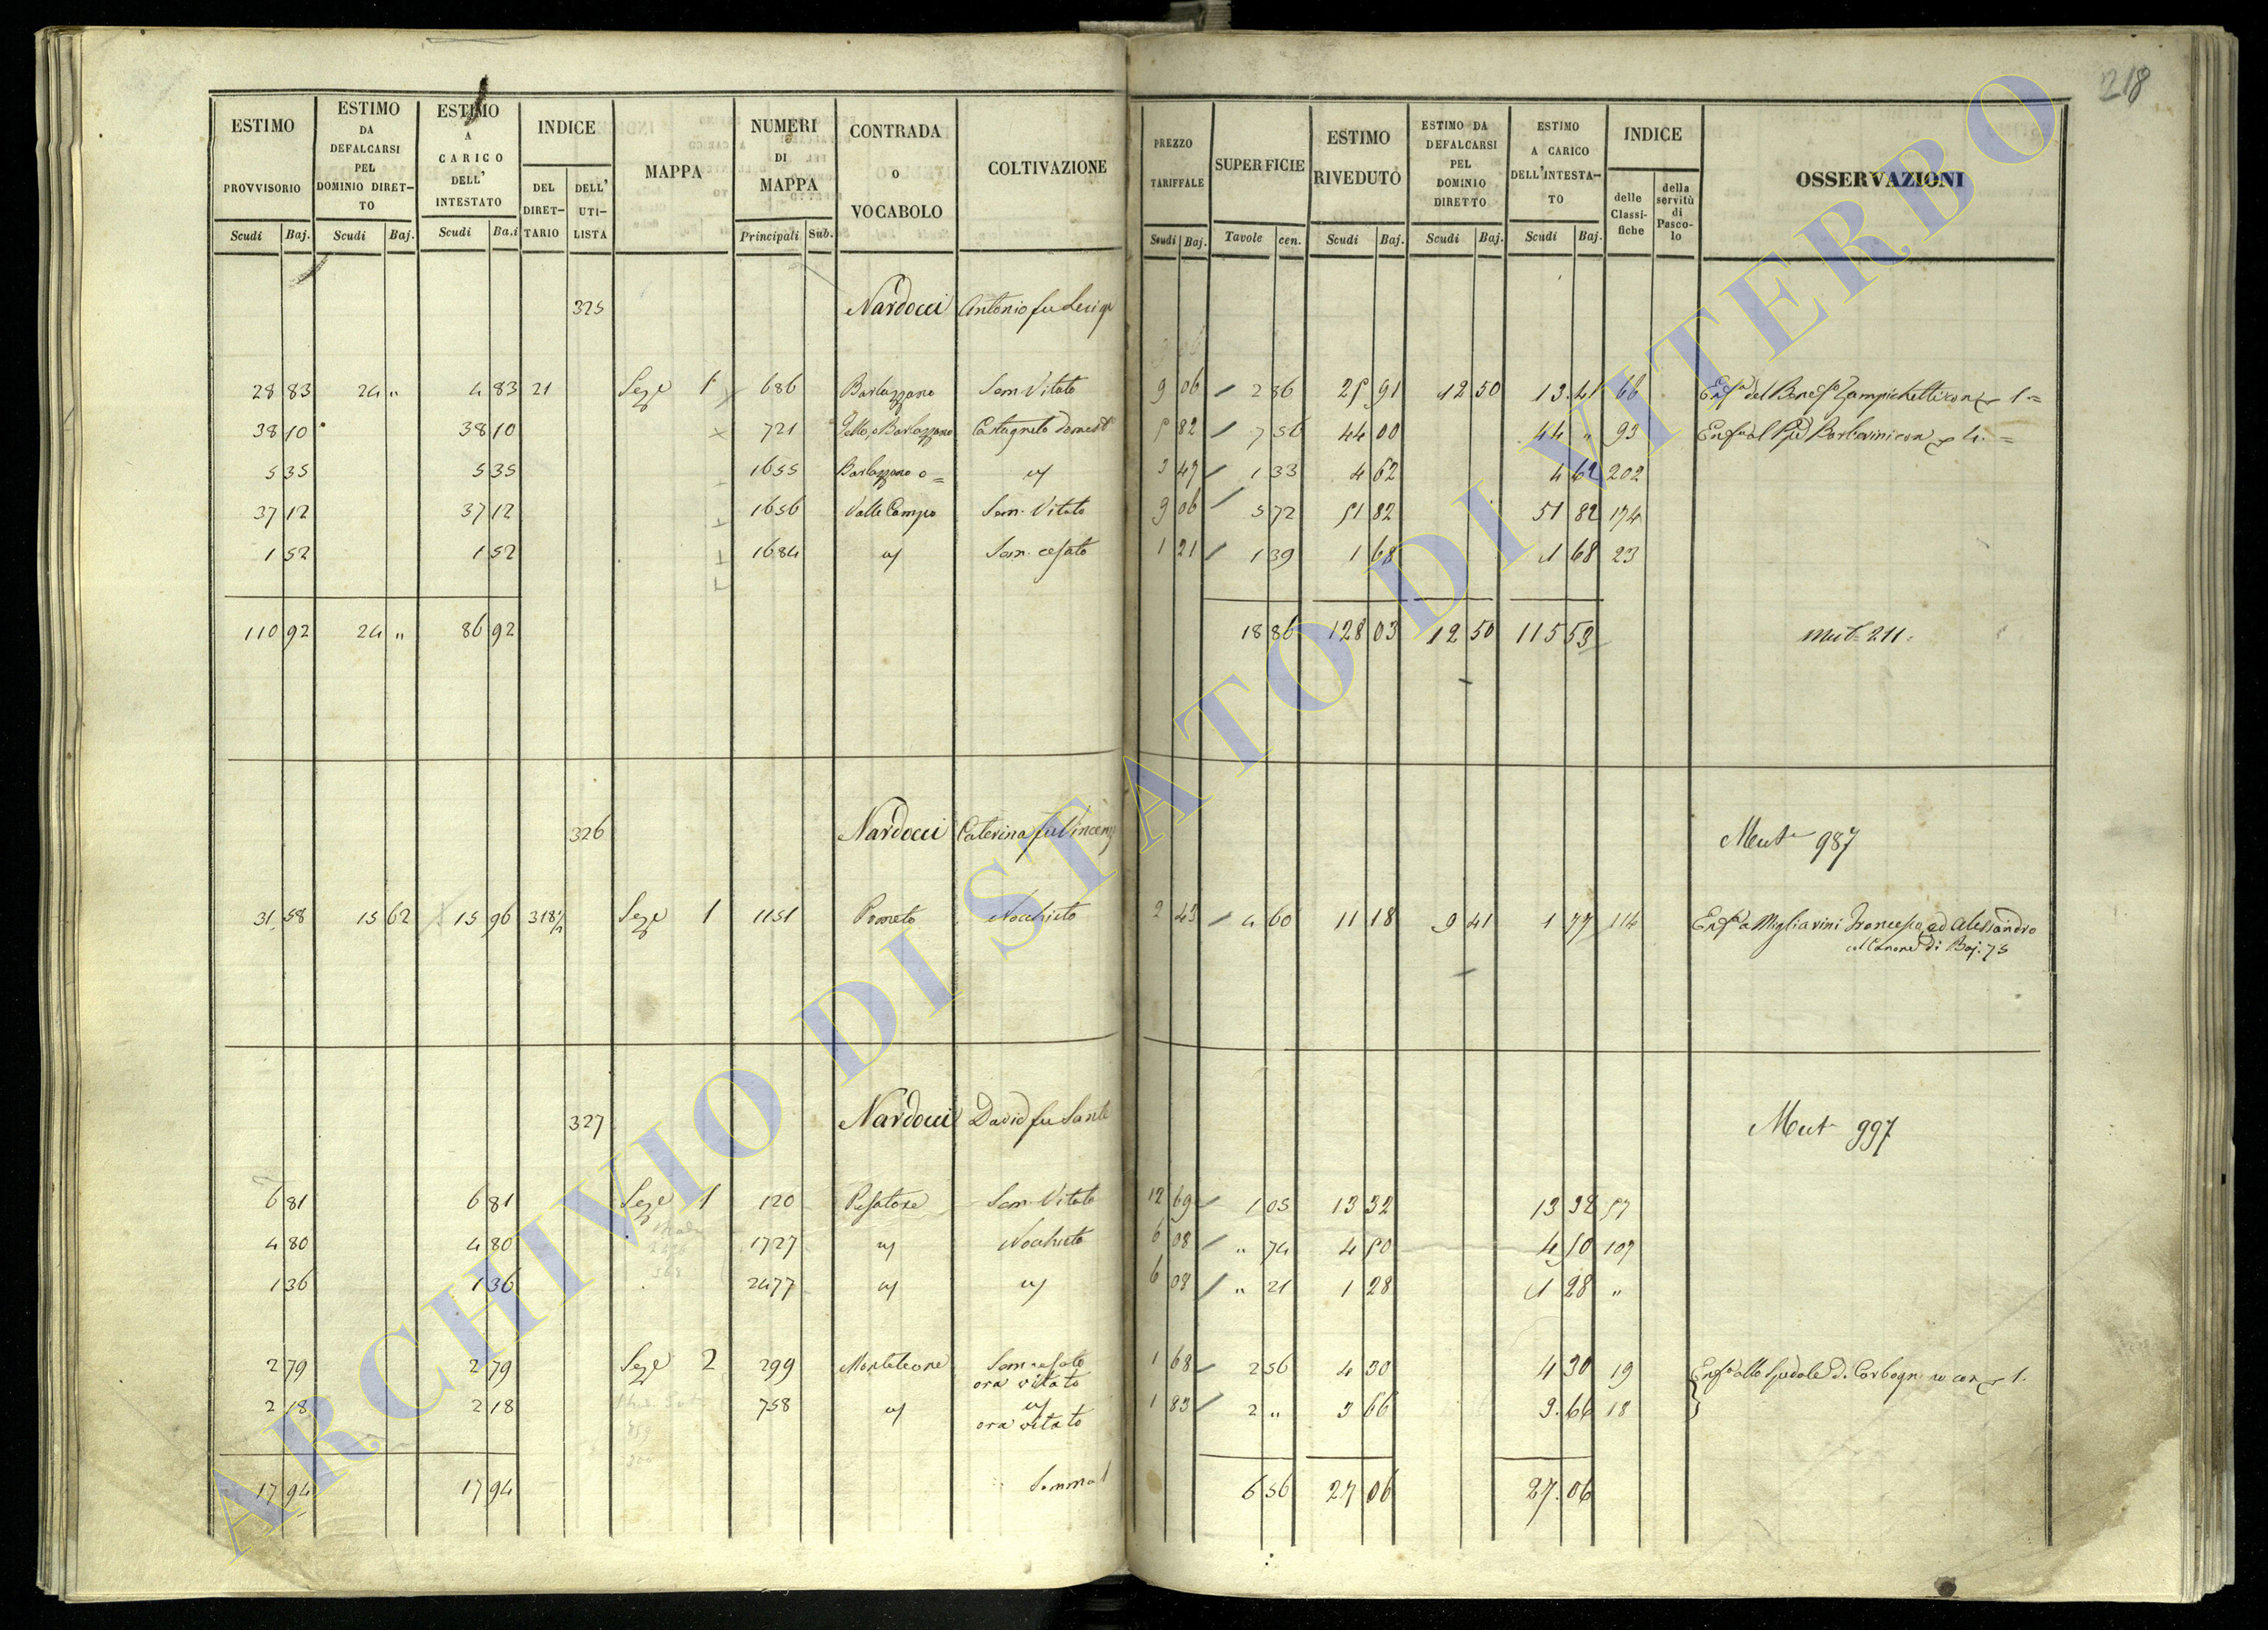 218
ESTIMO PROVVISORIO Scudi Baj.
ESTIMO DA DEFALCARSI PEL DOMINIO DIRET-TO Scudi Baj.
ESTIMO A CARICO DELL' INTESTATO Scudi Ba.i
INDICE DEL DIRET-TARIO DELL' UTI-LISTA
MAPPA
NUMERI DI MAPPA Principali Sub.
CONTRADA O VOCABOLO
COLTIVAZIONE
PREZZO TARIFFALE Scudi Baj.
SUPERFICIE Tavole cen.
ESTIMO RIVEDUTO Scudi Baj.
ESTIMO DA DEFALCARSI PEL DOMINIO DIRETTO Scudi Baj.
ESTIMO A CARICO DELL'INTESTA-TO Scudi Baj.
INDICE delle Classi-fiche della servitù di Pasco-lo
OSSERVAZIONI
325 Nardocci Antonio fu
28 83 24 " 4 83 21 Sez.e 1 686 Barlozzano Sem. Vitato 9 06 2 86 25 91 12 50 13.41 66
38 10 38 10 721 Castagneto 5 82 7 56 44 00 44 " 93
5 35 5 35 1655 Barlozzano o = 3 47 1 33 4 62 4 62 202
37 12 37 12 1656 Valle Campo Sem. Vitato 9 06 5 72 51 82 51 82 174
1 52 1 52 1684 Sem. cesato 1 21 1 39 1 68 1 68 23
110 92 24 " 86 92 18 86 128 03 12 50 115 53 Mut. 211
326 Nardocci Caterina fu Vincenzo Mut. 987
31 58 15 62 15 96 318 Sez.e 1 1151 Pometo Nocchieto 2 43 4 60 11 18 9 41 1 77 114 Enf.a a Migliarini Francesco, ed Alessandro
Canone di Baj. 75
327 Nardocci David fu Sante Mut. 997
6 81 6 81 Sez.e 1 120 Pisatore Sem. Vitato 12 69 1 05 13 32 13 32 57
4 80 4 80 1727 Nocchieto 6 08 " 74 4 50 4 50 107
1 36 1 36 2477 6 08 " 21 1 28 1 28 "
2 79 2 79 Sez.e 2 299 Monteleone Sem. cesato 1 68 2 56 4 30 4 30 19
ora vitato
2 18 2 18 758 1 83 2 " 3 66 3.66 18
ora vitato
17 94 17 94 Somma 6 56 27 06 27.06
ARCHIVIO DI STATO DI VITERBO